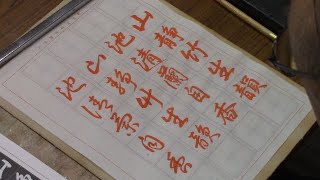 山静竹生韻
池清蘭自香
山静竹生韻
池清蘭自香